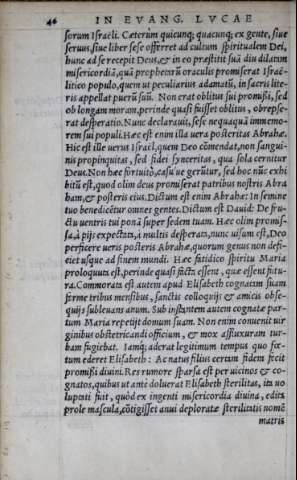 46 IN EVANG. LVCAE
sorum Israëli. Cæterùm quicunq; quacunq; ex gente, siue
seruus, siue liber sese offerret ad cultum spiritualem Dei,
hunc ad se recepit Deus, & in eo præstitit suã diu dilatam
misericordiã, quã prophetarũ oraculis promiserat Israë-
litico populo, quem ut peculiarius adamatũ, in sacris lite-
ris appellat puerũ suũ. Non erat oblitus sui promissi, sed
ob longam moram, perinde quasi fuisset oblitus, obrepse-
rat desperatio. Nunc declarauit, sese nequaquã immemo-
rem sui populi. Hæc est enim illa uera posteritas Abrahæ.
Hic est ille uerus Israël, quem Deo cõmendat, non sangui-
nis propinquitas, sed fidei synceritas, qua sola cernitur
Deus. Non hæc fortuitò, casu'ue gerũtur, sed hoc nũc exhi
bitũ est, quod olim deus promiserat patribus nostris Abra
ham, & posteris eius. Dictum est enim Abrahæ: In semine
tuo benedicẽtur omnes gentes. Dictum est Dauid: De fru-
ctu uentris tui ponã super sedem tuam. Hæc olim promis-
sa, à pijs expectata, à multis desperata, nunc uisum est, Deo
perficere ueris posteris Abrahæ, quorum genus non defi-
ciet usque ad finem mundi. Hæc fatidico spiritu Maria
proloquuta est, perinde quasi facta essent, quæ essent futu-
ra. Commorata est autem apud Elisabeth cognatam suam
ferme tribus mensibus, sanctis colloquijs & amicis obse-
quijs subleuans anum. Sub instantem autem cognatæ par-
tum Maria repetijt domum suam. Non enim conuenit uir
ginibus obstetricandi officium, & mox affluxuram tur-
bam fugiebat. Iamq; aderat legitimum tempus quo fœ-
tum ederet Elisabeth: Ac natus filius certam fidem fecit
promissi diuini. Res rumore sparsa est per uicinos & co-
gnatos, quibus ut antè doluerat Elisabeth sterilitas, ita uo
luptati fuit, quòd ex ingenti misericordia diuina, edita
prole mascula, cõtigisset anui deploratæ sterilitatis nomẽ
matris